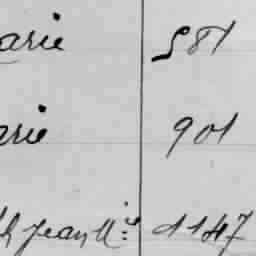 arie 581
arie 901
h Jean Mie 1147